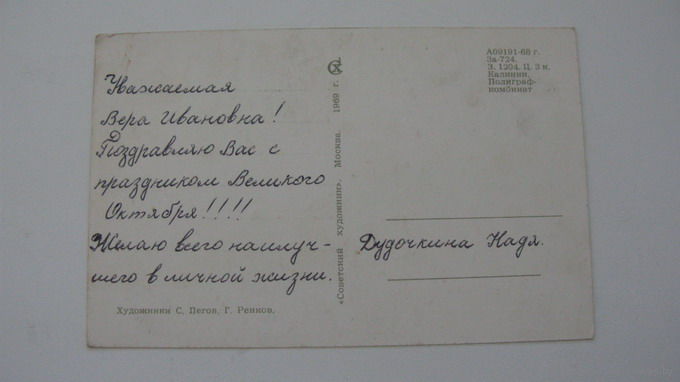 Уважаемая
Вера Ивановна!
Поздравляю Вас с
праздником Великого
Октября!!!!
Желаю всего наилуч-
шего в личной жизни.
Художники С. Пегов, Г. Ренков.
«Советский художник». Москва. 1969 г.
А09191-68 г.
За-724.
З. 1204. Ц. 3 к.
Калинин.
Полиграф-
комбинат
Дудочкина Надя.